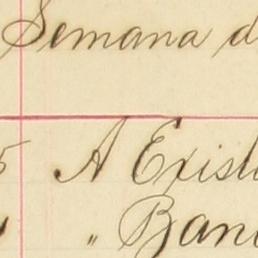 Semana d
5 A Exist
" Banc